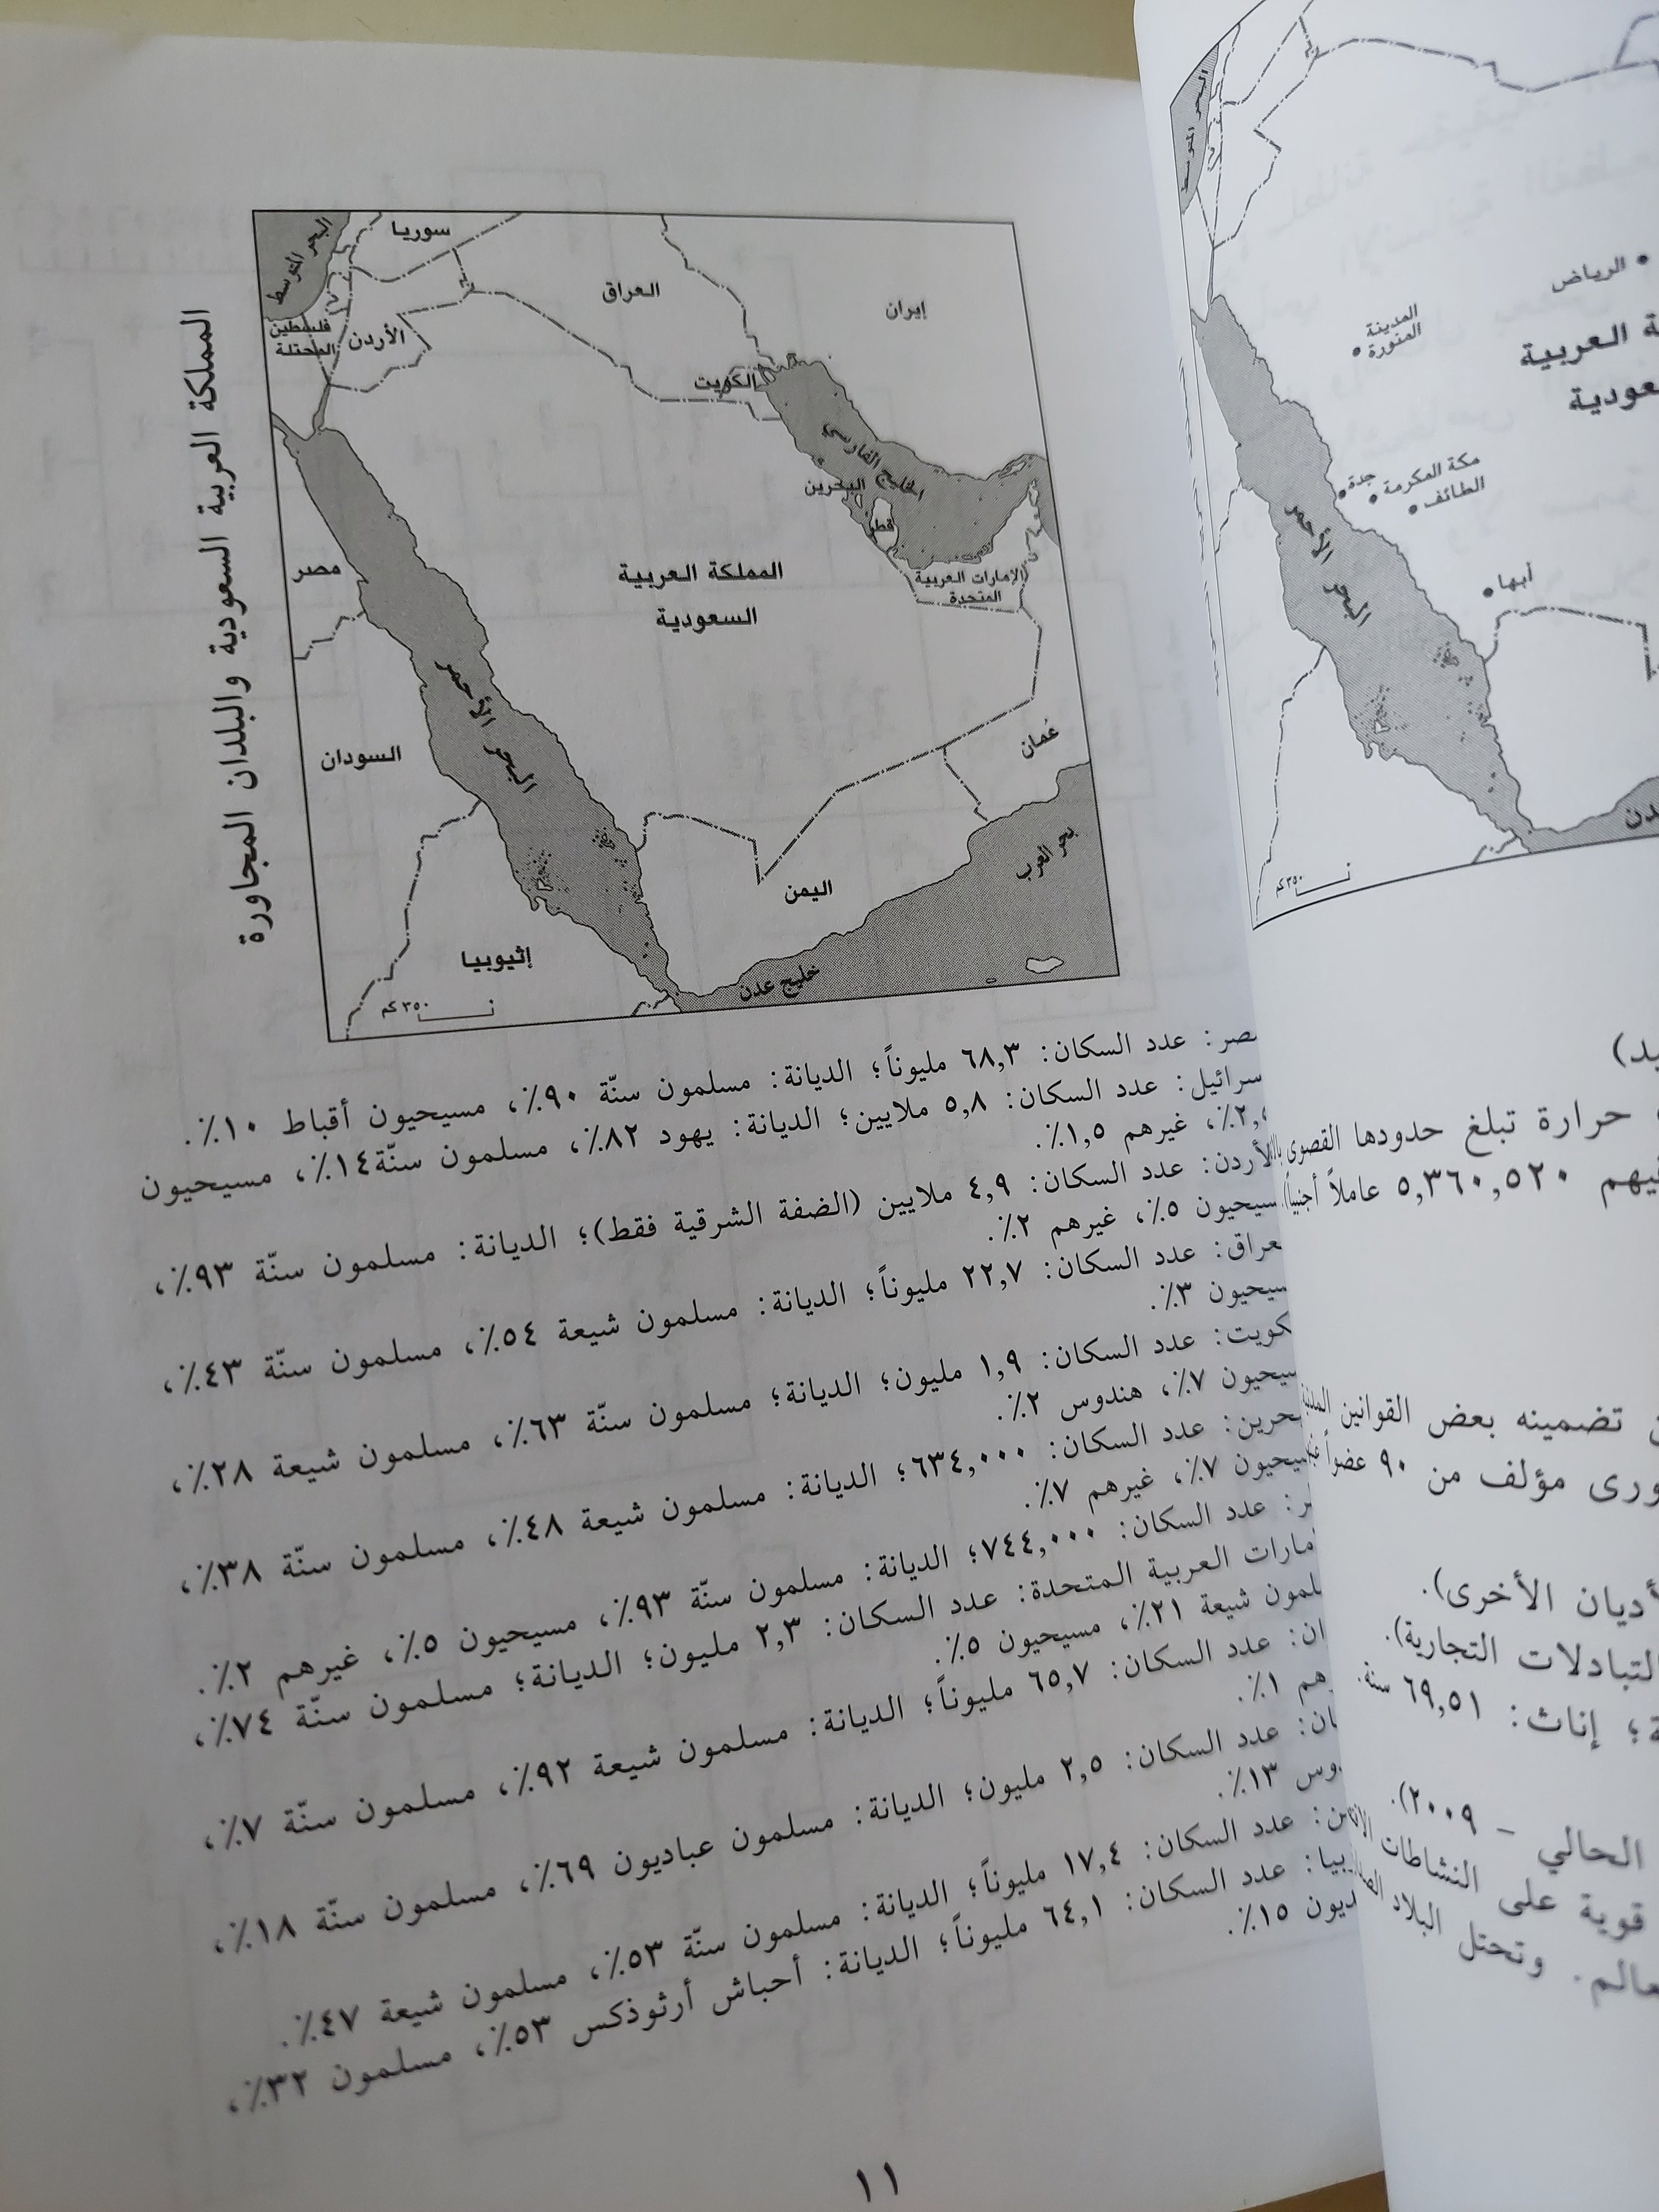 المملكة العربية السعودية والبلدان المجاورة
البحر المتوسط
سوريا
العراق
إيران
فلسطين
المحتلة
الأردن
الكويت
الخليج الفارسي
البحرين
قطر
الإمارات العربية
المتحدة
مصر
المملكة العربية
السعودية
البحر الأحمر
السودان
عُمان
بحر العرب
اليمن
إثيوبيا
خليج عدن
٣٥٠ كم
عدد السكان: ٦٨,٣ مليوناً؛ الديانة: مسلمون سنّة ٩٠٪، مسيحيون أقباط ١٠٪.
عدد السكان: ٥,٨ ملايين؛ الديانة: يهود ٨٢٪، مسلمون سنّة١٤٪، مسيحيون
غيرهم ١,٥٪.
عدد السكان: ٤,٩ ملايين (الضفة الشرقية فقط)؛ الديانة: مسلمون سنّة ٩٣٪،
٥٪، غيرهم ٢٪.
عدد السكان: ٢٢,٧ مليوناً؛ الديانة: مسلمون شيعة ٥٤٪، مسلمون سنّة ٤٣٪،
٣٪.
عدد السكان: ١,٩ مليون؛ الديانة؛ مسلمون سنّة ٦٣٪، مسلمون شيعة ٢٨٪،
٧٪، هندوس ٢٪.
عدد السكان: ٦٣٤,٠٠٠؛ الديانة: مسلمون شيعة ٤٨٪، مسلمون سنّة ٣٨٪،
٧٪، غيرهم ٧٪.
عدد السكان: ٧٤٤,٠٠٠؛ الديانة: مسلمون سنّة ٩٣٪، مسيحيون ٥٪، غيرهم ٢٪.
العربية المتحدة: عدد السكان: ٢,٣ مليون؛ الديانة؛ مسلمون سنّة ٧٤٪،
شيعة ٢١٪، مسيحيون ٥٪.
عدد السكان: ٦٥,٧ مليوناً؛ الديانة: مسلمون شيعة ٩٢٪، مسلمون سنّة ٧٪،
١٪.
عدد السكان: ٢,٥ مليون؛ الديانة: مسلمون عباديون ٦٩٪، مسلمون سنّة ١٨٪،
١٣٪.
عدد السكان: ١٧,٤ مليوناً؛ الديانة: مسلمون سنّة ٥٣٪، مسلمون شيعة ٤٧٪.
عدد السكان: ٦٤,١ مليوناً؛ الديانة: أحباش أرثوذكس ٥٣٪، مسلمون ٣٢٪،
١٥٪.
١١
البحر المتوسط
الرياض
المدينة
المنورة
العربية
جدة
مكة المكرمة
الطائف
البحر الأحمر
أبها
٣٥٠ كم
حرارة تبلغ حدودها القصوى
٥,٣٦٠,٥٢٠ عاملاً أجنبياً
تضمينه بعض القوانين
مؤلف من ٩٠ عضواً
الأخرى).
التجارية).
إناث: ٦٩,٥١ سنة.
الحالي – ٢٠٠٩).
قوية على النشاطات
وتحتل البلاد